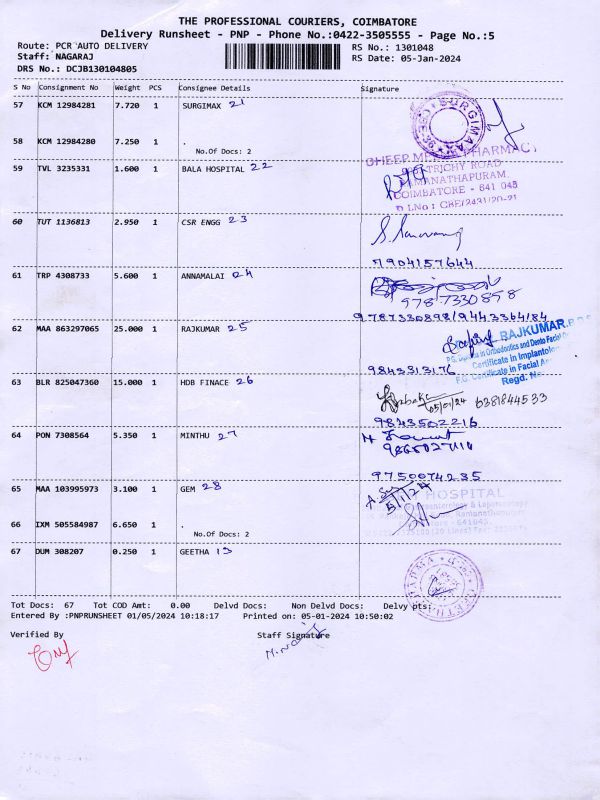 THE PROFESSIONAL COURIERS, COIMBATORE
Delivery Runsheet - PNP - Phone No.:0422-3505555 - Page No.:5
Route: PCR AUTO DELIVERY RS No.: 1301048
Staff: NAGARAJ RS Date: 05-Jan-2024
DRS No.: DCJB130104805
S No Consignment No Weight PCS Consignee Details Signature
57 KCM 12984281 7.720 1 SURGIMAX 21
SURGIMAX
58 KCM 12984280 7.250 1 .
No.Of Docs: 2
PHARMACY
59 TVL 3235331 1.600 1 BALA HOSPITAL 22
TRICHY ROAD
RAMANATHAPURAM
COIMBATORE - 641 045
D LNo : CBE/2431/20-21
60 TUT 1136813 2.950 1 CSR ENGG 23
7904157644
61 TRP 4308733 5.600 1 ANNAMALAI 24
9787330898
9787330898/9443364184
62 MAA 863297065 25.000 1 RAJKUMAR 25
RAJKUMAR
P.G. in Orthodontics and Dento Facial
Certificate in Implantolo
P.G. Certificate in Facial
Regd. No.
9843313176
63 BLR 825047360 15.000 1 HDB FINACE 26
05/01/24 6381844533
9843502216
64 PON 7308564 5.350 1 MINTHU 27
9750074235
65 MAA 103995973 3.100 1 GEM 28
5/1/24
HOSPITAL
Ramanathapuram
66 IXM 505584987 6.650 1 .
No.Of Docs: 2
67 DUM 308207 0.250 1 GEETHA 13
GEETHA PHARMA
Tot Docs: 67 Tot COD Amt: 0.00 Delvd Docs: Non Delvd Docs: Delvy pts:
Entered By :PNPRUNSHEET 01/05/2024 10:18:17 Printed on: 05-01-2024 10:50:02
Verified By Staff Signature